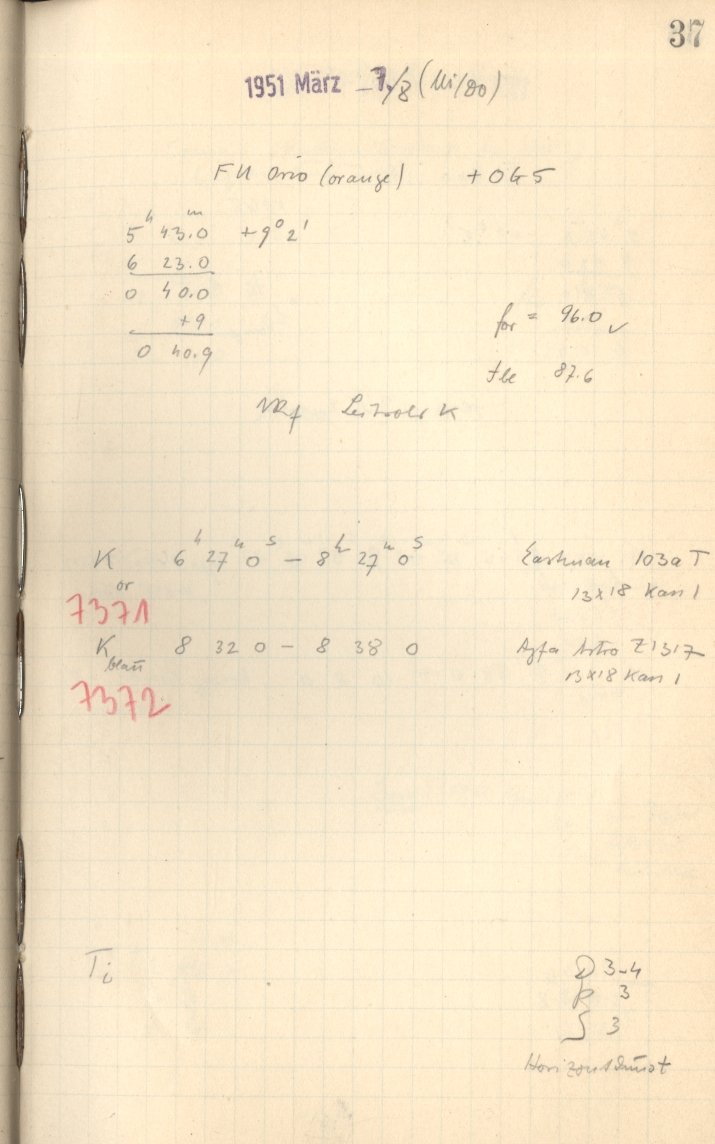 37
1951 März -7./8 (Mi/Do)
FU Orio (orange) + OG5
5 h 43.0 m +9° 2'
6 23.0
0 40.0
+9
0 40.9
for = 96.0 ✓
fbl 87.6
Leitrohr K
K or 6 h 27 m 0 s – 8 h 27 m 0 s Eastman 103a T
13x18 Kass 1
7371
K blau 8 32 0 – 8 38 0 Agfa Astro Z1317
13x18 Kass 1
7372
Ti
D 3-4
R 3
S 3
Horizontdunst